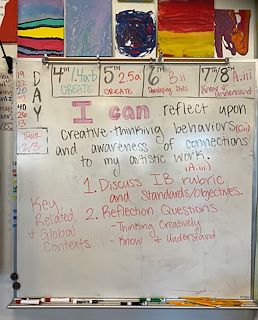 4th 1.4a+b
CREATE
5th 2.5a
CREATE
6th B.ii
Developing Skills
7th 8th A.iii
Know + Understand
19
22
20
40
26
13
DAY
THUR
2/3
I can reflect upon
creative-thinking behaviors (Cii)
and awareness of connections
to my artistic work.
(A.iii)
1. Discuss IB rubric
and Standards/Objectives.
2. Reflection Questions
- Thinking Creatively
- Know + Understand
Key,
Related,
+ Global
Contexts